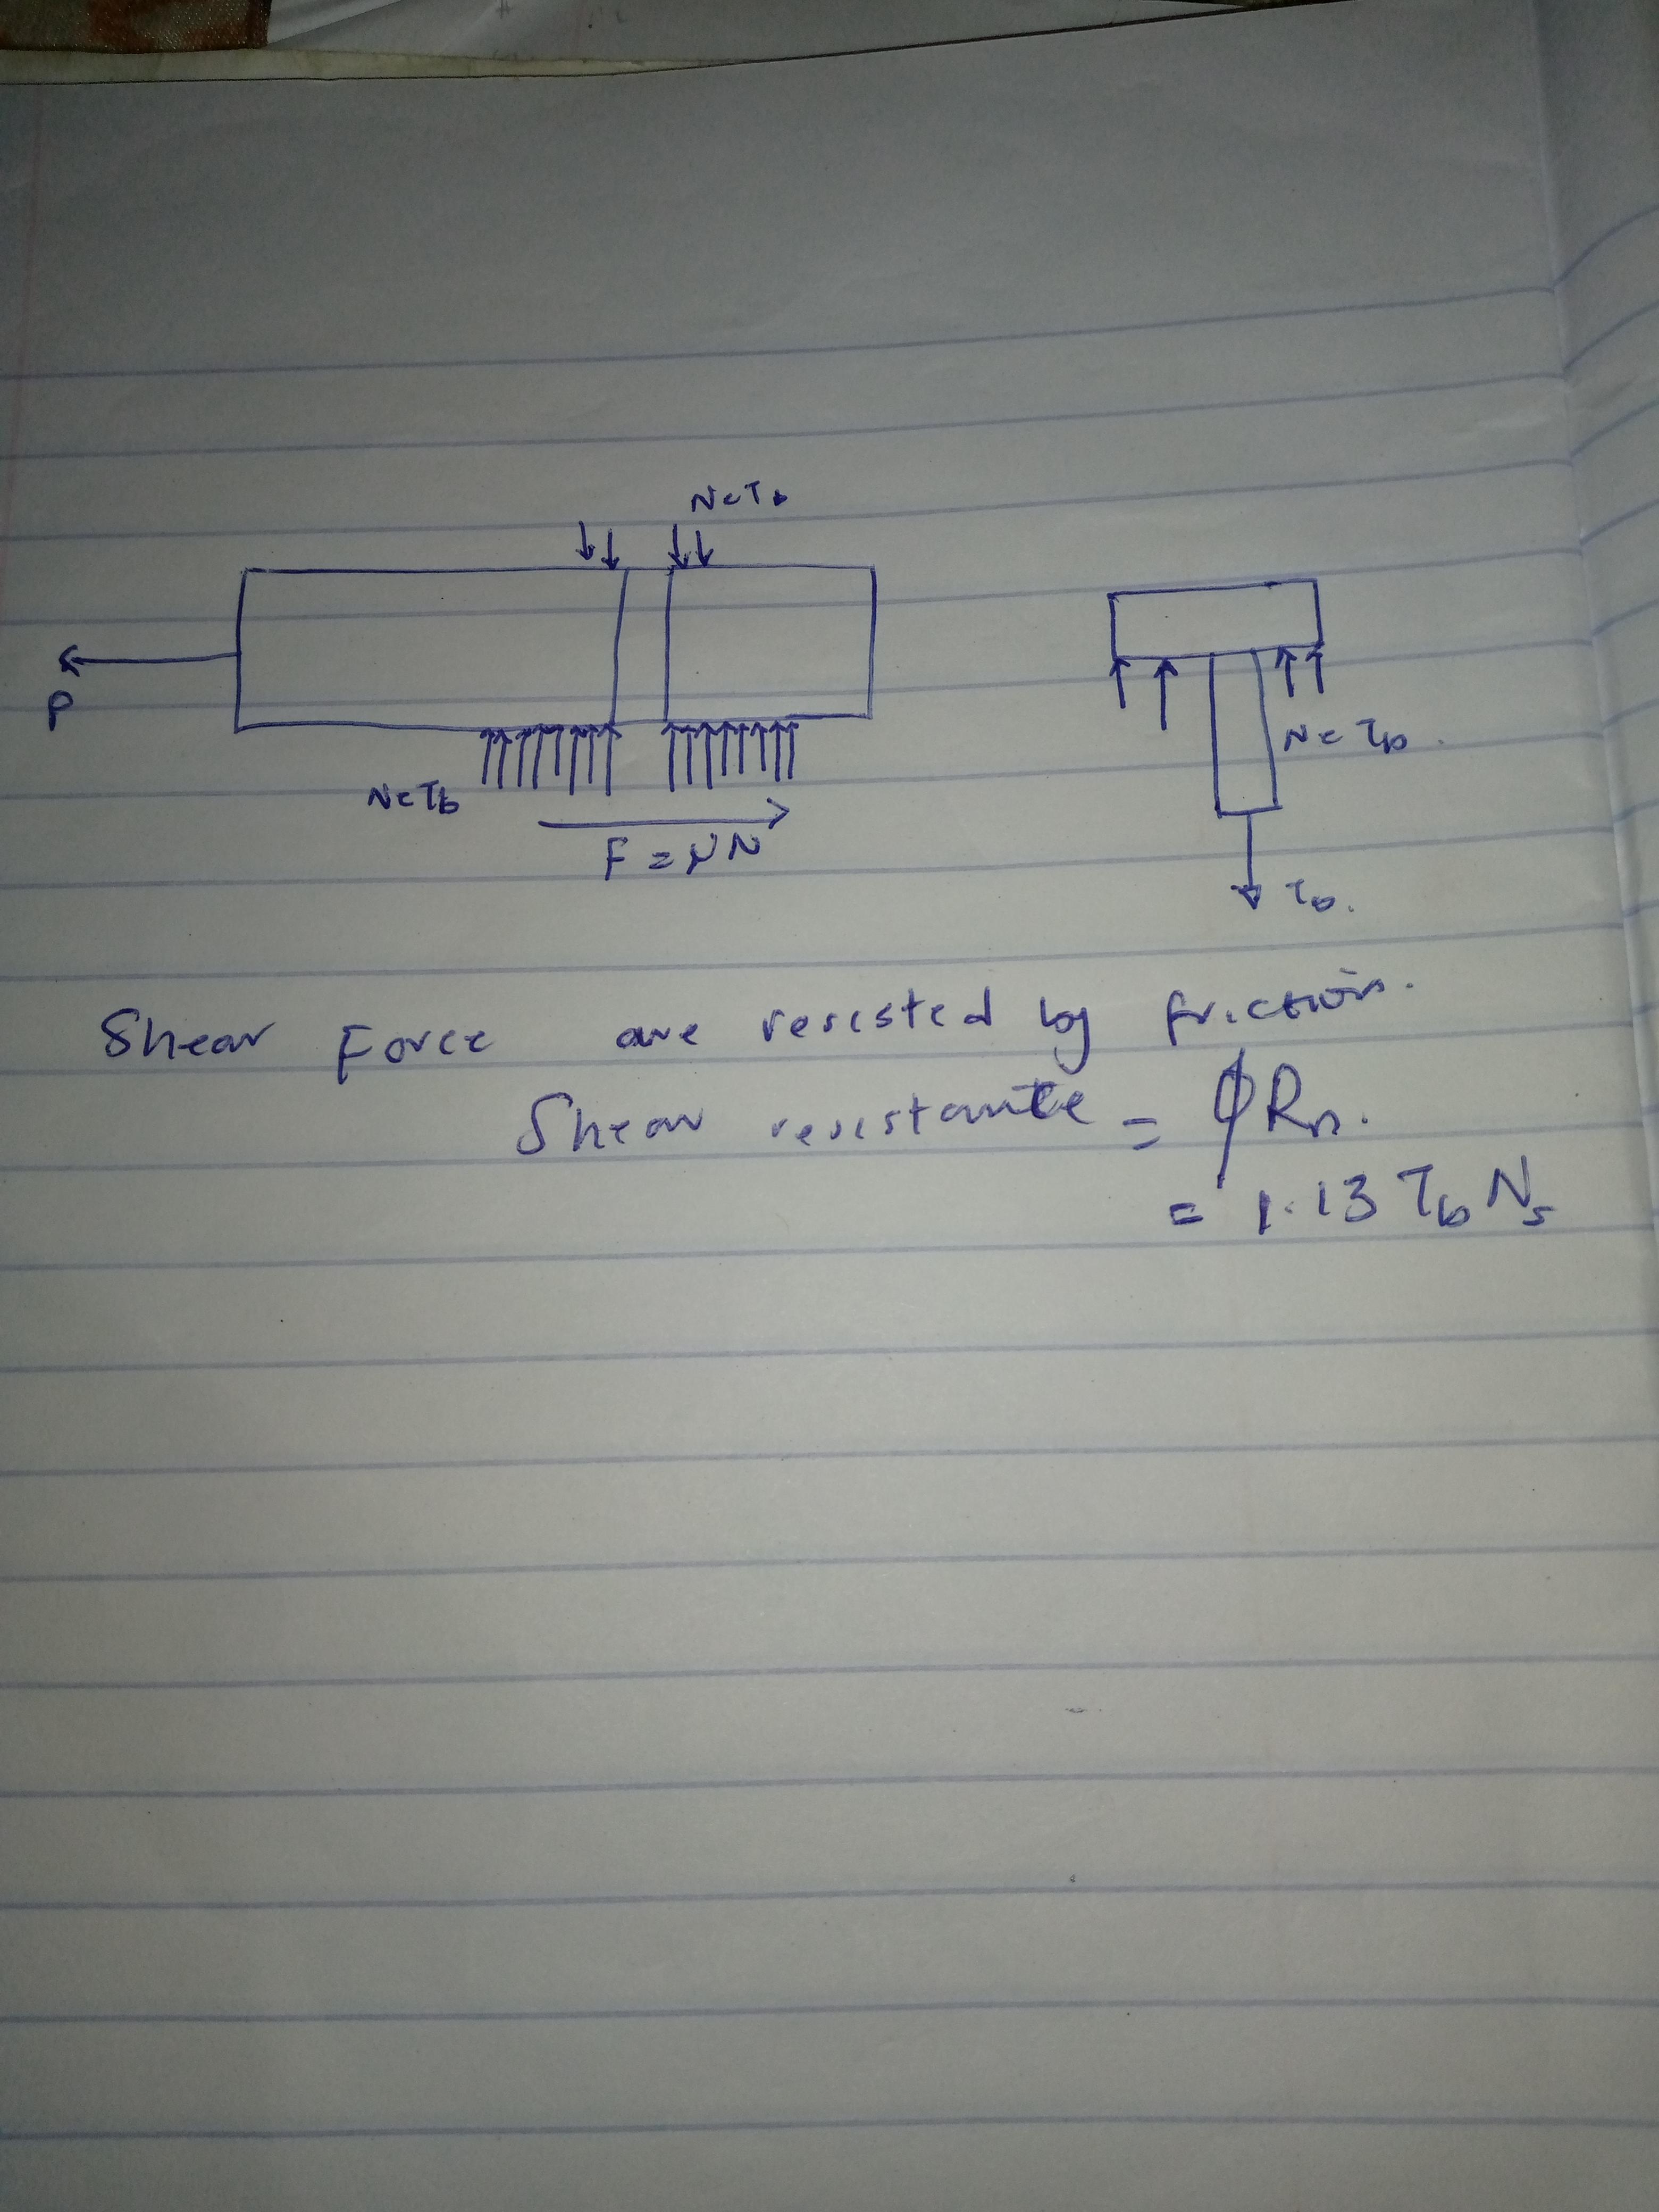 N=Tb
P
N=Tb
N=Tb.
F=μN
Tb.
Shear Force are resisted by friction.
Shear resistance = ϕRn.
= 1.13 Tb Ns